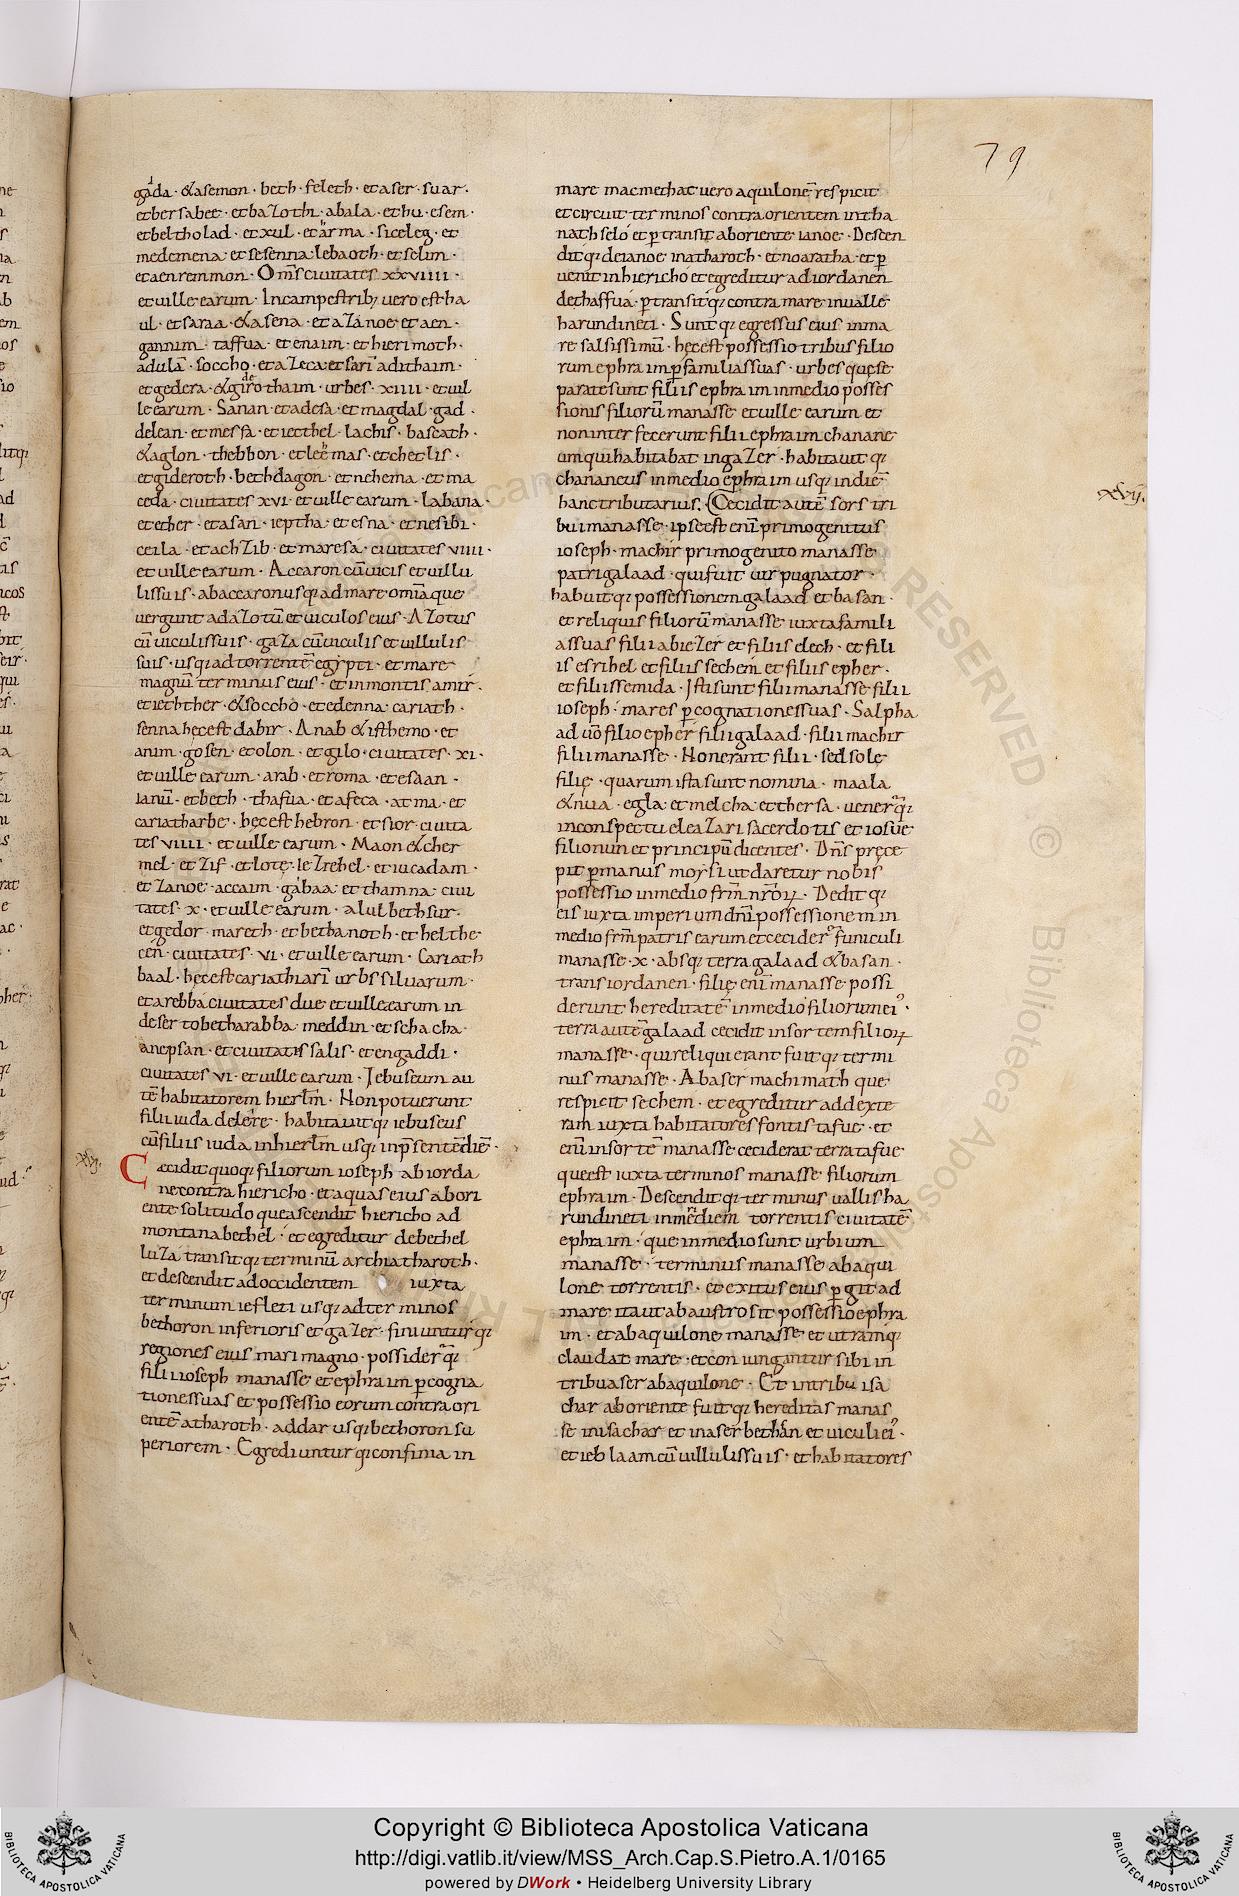 79
gada · & asemon · beth · feleth · et aser · suar ·
et bersabee · et baZoth · abala · et hu · esem ·
et beltholad · et xul · et arma · siceleg · et
medemena et sesenna lebaoth · et selim ·
et aenremmon · Om̅s ciuitates xxviiii ·
et uille earum · In campestrib; uero estha
ul · et saraa · & asena · et aZanoe et aen ·
gannim · taffua · et enaim · et hierimoth ·
adulā · soccho · et aZeca et sari adithaim ·
et gedera · & giderothaim · urbes · xiiii · et uil
le earum · Sanan et adesa · et magdal gad ·
delean · et mesfa · et iecthel · lachis · bascath ·
& aglon · thebbon · et leemas · et chetlis ·
et gideroth · bethdagon · et nehema · et ma
ceda · ciuitates xvi · et uille earum · labana ·
et ether · et asan · ieptha · et esna · et nesibi ·
ceila · et achZib · et maresa · ciuitates viiii ·
et uille earum · Accaron cū uicis et uillu
lis suis · ab accaron usq; ad mare om̅ia que
uergunt ad aZotū et uiculos eius · AZotus
cū uiculis suis · gaZa cū uiculis et uillulis
suis · usq; ad torrentē egypti · et mare
magnū terminus eius · et in montis amir ·
et iethther · & soccho · et edenna cariath ·
senna hęc est dabir · Anab & isthemo · et
anim · gosen · et olon · et gilo · ciuitates · xi ·
et uille earum · arab · et roma · et esaan ·
ianū · et beth · thafua · et afeca · atma · et
cariatharbe · hęc est hebron · et sior · ciuita
tes viiii · et uille earum · Maon & cher
mel · et Zif · et lotę · ieZrehel · et iucadam ·
et Zanoe · accaim · gabaa · et thamna · ciui
tates · x · et uille earum · alul bethsur ·
et gedor · mareth · et bethanoth · et helthe
cen̅ · ciuitates · vi · et uille earum · Cariath
baal · hęc est cariathiarī urbs siluarum ·
et arebba ciuitates due et uille earum in
deserto betharabba · meddin · et schacha ·
anepsan · et ciuitatis salis · et engaddi ·
ciuitates vi · et uille earum · Iebuseum au
tē habitatorem hierlm̅ · Non potuerunt
filii iuda delere · habitauitq; iebuseus
cū filiis iuda in hierlm̅ usq; in p̅sentē diē ·
xvj.
Cecidit quoq; filiorum ioseph ab iorda
ne contra hiericho · et aquas eius ab ori
ente solitudo que ascendit hiericho ad
montana bethel · et egreditur de bethel
luZa transitq; terminū archi atharoth ·
et descendit ad occidentem iuxta
terminum iefleti usq; ad terminos
bethoron inferioris et gaZer · finiunturq;
regiones eius mari magno · possiderq;
filii ioseph manasse et ephraim p̱ cogna
tiones suas et possessio eorum contra ori
entē atharoth · addar usq; bethoron su
periorem · Egrediunturq; confinia in
mare macmethat uero aquilonē respicit
et circuit terminos contra orientem in tha
nathselo et p̱transit ab oriente ianoe · Descen
ditq; de ianoe in atharoth · et noaratha · et p̱
uenit in hiericho et egreditur ad iordanen
de thaffua · p̱transitq; contra mare in ualle
harundineti · Suntq; egressus eius in ma
re salsissimū · hęc est possessio tribus filio
rum ephraim p̱ familias suas · urbesq; quę se
parate sunt filiis ephraim in medio posses
sionis filiorū manasse et uille earum et
non interfecerunt filii ephraim chanane
um qui habitabat in gaZer · habitauitq;
chananeus in medio ephraim usq; in diē
hanc tributarius. Cecidit autē sors tri
xvij.
bui manasse · ipse est enī primogenitus
ioseph · machir primogenito manasse
patri galaad · qui fuit uir pugnator ·
habuitq; possessionem galaad et basan ·
et reliquis filiorū manasse iuxta famili
as suas · filii abieZer et filiis elech · et fili
is esrihel et filiis sechem et filiis epher ·
et filiis semida · Isti sunt filii manasse filii
ioseph · mares p̱ cognationes suas · Salpha
ad u̅o filio epher filii galaad · filii machir
filii manasse · Non erant filii · sed sole
filię · quarum ista sunt nomina · maala
& nua · egla et melcha et thersa · uenerq̅;
in conspectu eleaZari sacerdotis et iosue
filio nun et principū dicentes · Dn̅s pręce
pit p̱ manus moysi ut daretur nobis
possessio in medio frm̅ nr̅oꝝ · Deditq;
eis iuxta imperium dn̅i possessionem in
medio frm̅ patris earum et cecider̅ funiculi
manasse · x · absq; terra galaad & basan ·
trans iordanen · filię enī manasse possi
derunt hereditatē in medio filiorum ei⁹ ·
terra autē galaad cecidit in sortem filioꝝ
manasse · qui reliqui erant fuitq; termi
nus manasse · Ab aser machimath que
respicit sechem · et egreditur ad dexte
ram iuxta habitatores fontis tafue · et
enī in sortē manasse ceciderat terra tafue
que est iuxta terminos manasse filiorum
ephraim · Descenditq; terminus uallis ha
rundineti in meridiem torrentis ciuitatē
ephraim · que in medio sunt urbium
manasse · terminus manasse ab aqui
lone torrentis · et exitus eius p̱git ad
mare ita ut ab austro sit possessio ephra
im · et ab aquilone manasse et utramq;
claudat mare · et coniungantur sibi in
tribu aser ab aquilone · Et in tribu isa
char ab oriente fuitq; hereditas manas
se in isachar et in aser bethan et uiculi ei⁹ ·
et ieblaam cū uillulis suis · et habitatores
Copyright © Biblioteca Apostolica Vaticana
http://digi.vatlib.it/view/MSS_Arch.Cap.S.Pietro.A.1/0165
powered by DWork • Heidelberg University Library